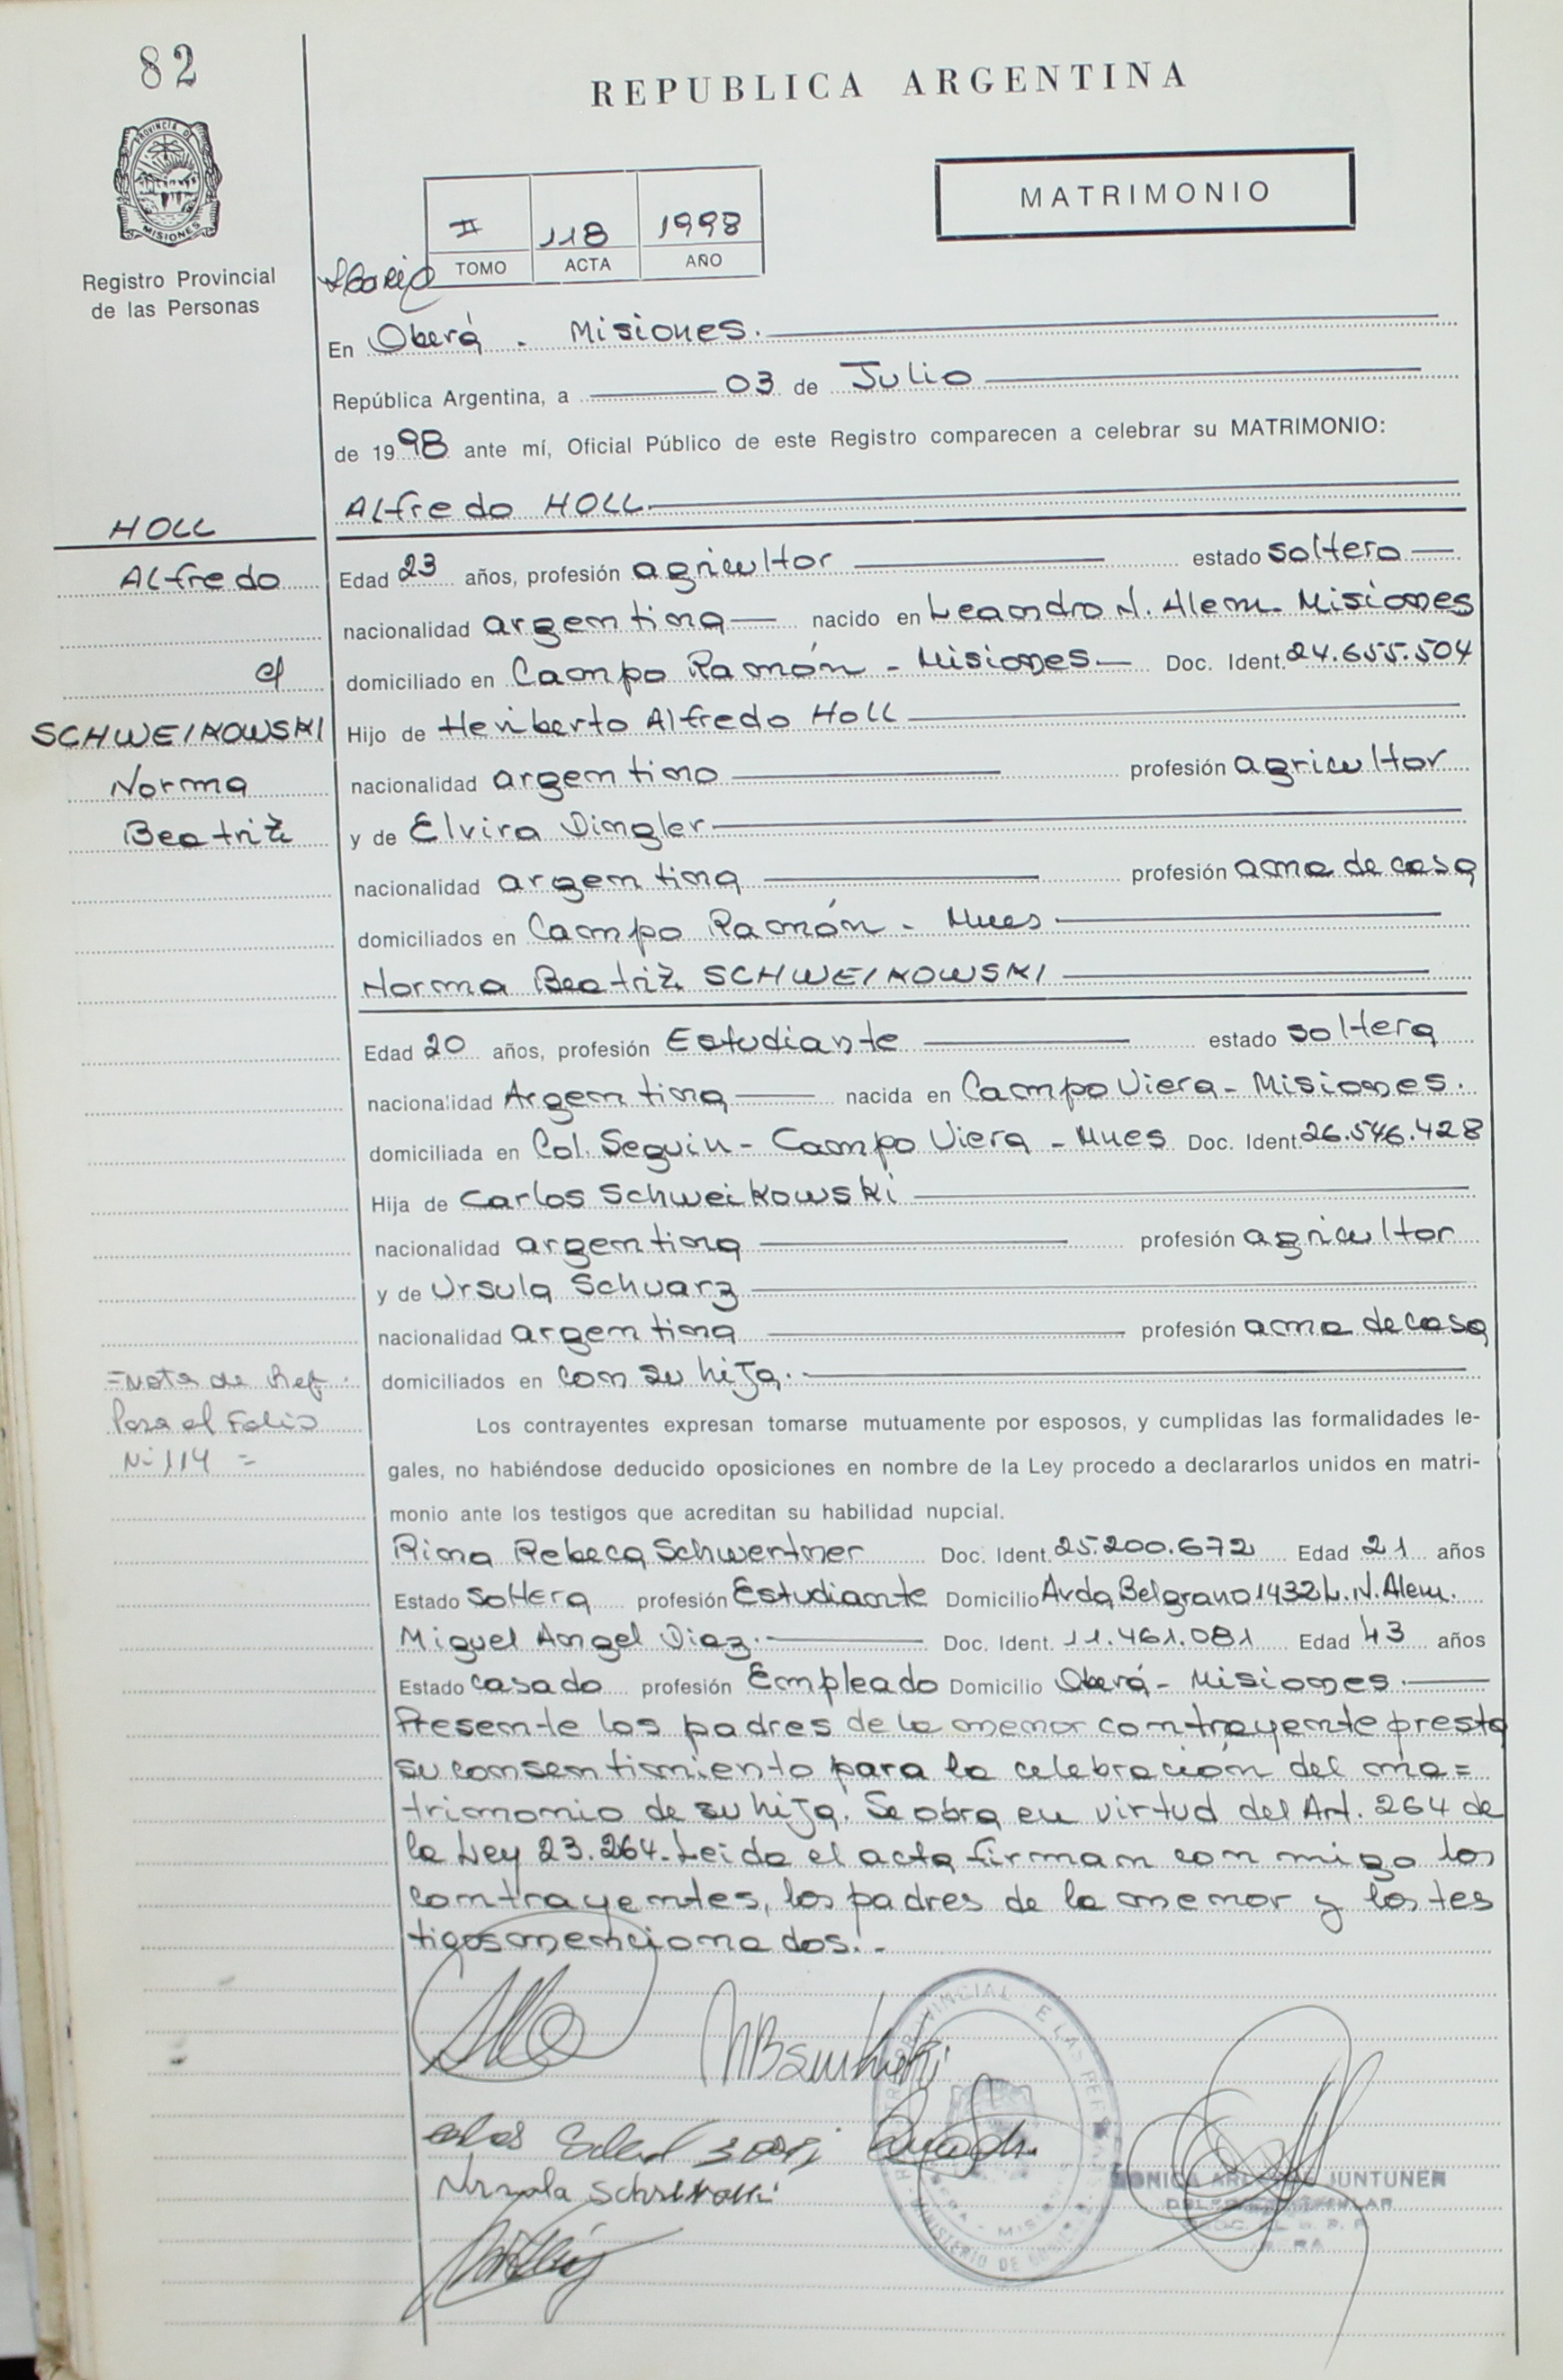 82
REPUBLICA ARGENTINA
PROVINCIA DE
MISIONES
MATRIMONIO
II 118 1998
TOMO ACTA AÑO
Registro Provincial
de las Personas
En Oberá - Misiones.
República Argentina, a 03 de Julio
de 1998 ante mí, Oficial Público de este Registro comparecen a celebrar su MATRIMONIO:
HOLL
Alfredo HOLL
Alfredo
Edad 23 años, profesión agricultor estado soltero
nacionalidad argentina nacido en Leandro N. Alem - Misiones
c/
domiciliado en Campo Ramón - Misiones Doc. Ident. 24.655.504
SCHWEIKOWSKI
Hijo de Heriberto Alfredo Holl
Norma
nacionalidad argentino profesión agricultor
Beatriz
y de Elvira Dingler
nacionalidad argentina profesión ama de casa
domiciliados en Campo Ramón - Mnes
Norma Beatriz SCHWEIKOWSKI
Edad 20 años, profesión Estudiante estado soltera
nacionalidad Argentina nacida en Campo Viera - Misiones.
domiciliada en Col. Seguin - Campo Viera - Mnes Doc. Ident. 26.546.428
Hija de Carlos Schweikowski
nacionalidad argentina profesión agricultor
y de Ursula Schwarz
nacionalidad argentina profesión ama de casa
=Nota de Ref.
domiciliados en con su hija.
Pasa al Folio
Nº 114 =
Los contrayentes expresan tomarse mutuamente por esposos, y cumplidas las formalidades le-
gales, no habiéndose deducido oposiciones en nombre de la Ley procedo a declararlos unidos en matri-
monio ante los testigos que acreditan su habilidad nupcial.
Rina Rebeca Schwertner Doc. Ident. 25.200.672 Edad 21 años
Estado Soltera profesión Estudiante Domicilio Avda Belgrano 1432 L.N. Alem.
Miguel Angel Diaz. Doc. Ident. 11.461.081 Edad 43 años
Estado casado profesión Empleado Domicilio Oberá - Misiones
Presente los padres de la menor contrayente presta
su consentimiento para la celebración del ma=
trimonio de su hija. Se obra en virtud del Art. 264 de
la Ley 23.264. Leida el acta firman con migo los
contrayentes, los padres de la menor y los tes
tigos mencionados.-
JUNTUNEN